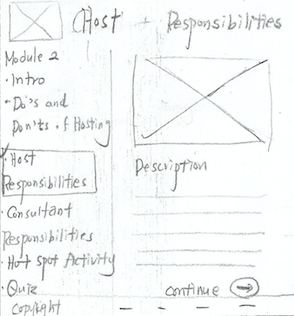 Host + Responsibilities
Module 2
• Intro
• Do's and
Don'ts of Hosting
• Host
Responsibilities
• Consultant
Responsibilities
• Hot Spot Activity
• Quiz
Copyright
Description
continue →